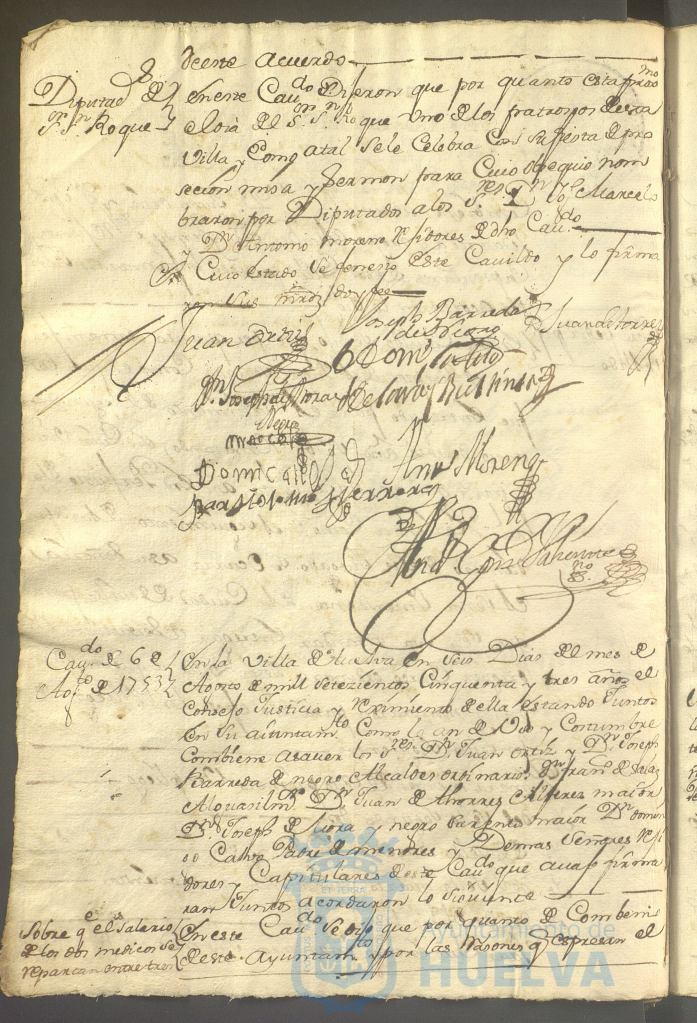 deeste acuerdo
Diputad.s de
Sr. Sn. Roque
En este Cau.do Dijeron que por quanto esta prox.mo
el dia del Sr. Sn. Roque uno de los patronos de esta
Villa y Como atal sele Celebra Con su fiesta de pro
sesion misa y sermon para Cuio obsequio nom
braron por Diputados a los S.res Dn. Marcelo
y Dn. Antonio Moreno Rejidores de dho Cau.do
En Cuio estado se feneçio este Cauildo y lo firma
ron sus mrds doy fee
Juan Ortiz
Joseph Barreda
de Negro
Juan de torres
Domingo
Bartolome Herrera
Antt. Moreno
Cau.do de 6 de
Ag.to de 1753
En la Villa de Huelva en seis Dias del mes de
Agosto de mill Setezientos Cinquenta y tres años el
Consejo Justicia y Reximiento de ella estando Juntos
en su aiuntam.to Como lo an de Vso y Costumbre
Combiene asauer los S.res Dn. Juan Ortiz y Dn. Joseph
Barreda de negro Alcaldes ordinarios Dn. fran.co de
Alguasil m.or Dn. Juan de thorres Alferez maior
Dn. Joseph de Mora y negro Sargento maior Dn. domin
go Calbo Padre de menores y Demas Señores Reji
dores y Capitulares de este Cau.do que auajo firma
ran Juntos acordaron lo siguiente
Sobre q.e el salario
de los dos medicos se
reparta entre tres
En este Cau.do se dijo que por quanto Combenio
de este Ayuntam.to y por las rasones q.e espresan el
Ayuntamiento de
HUELVA